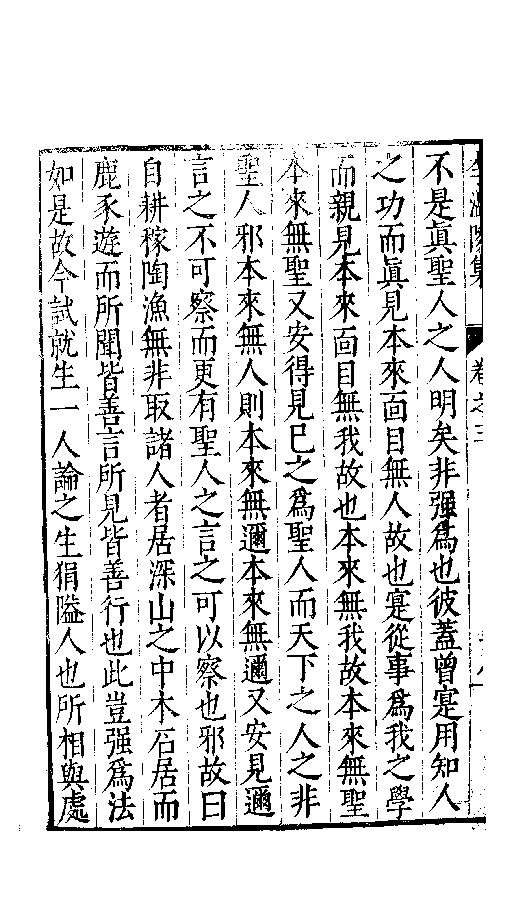 卷之三
不是眞聖人之人明矣非强爲也彼蓋曾寔用知人
之功而眞見本來面目無人故也寔從事爲我之學
而親見本來面目無我故也本來無我故本來無聖
本來無聖又安得見已之爲聖人而天下之人之非
聖人邪本來無人則本來無邇本來無邇又安見邇
言之不可察而更有聖人之言之可以察也邪故曰
自耕稼陶漁無非取諸人者居深山之中木石居而
鹿豕遊而所聞皆善言所見皆善行也此豈强爲法
如是故今試就生一人論之生狷隘人也所相與處